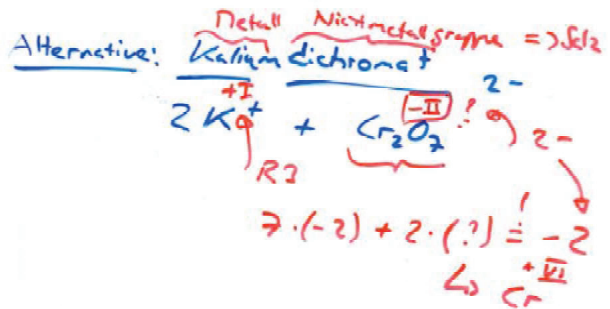 Metall Nichtmetallgruppe => Salz
Alternative: Kaliumdichromat
+I -II ? 2-
2 K⁺ + Cr₂O₇ 2-
R3
7·(-2) + 2·(?) =! -2
↳ Cr +VI